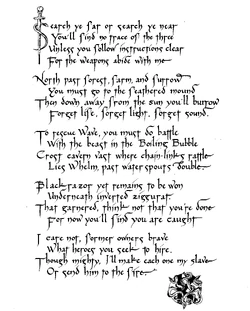 Search ye far or search ye near
You'll find no trace of the three
Unless you follow instructions clear
For the weapons abide with me
North past forest, farm, and furrow
You must go to the feathered mound
Then down away from the sun you'll burrow
Forget life, forget light, forget sound.
To rescue Wave, you must do battle
With the beast in the Boiling Bubble
Crost cavern vast where chain-links rattle
Lies Whelm, past water-spouts double.
Blackrazor yet remains to be won
Underneath inverted ziggurat.
That garnered, think not that you're done
For now you'll find you are caught
I care not, former owners brave
What heroes you seek to hire.
Though mighty, I'll make each one my slave
Or send him to the fire.